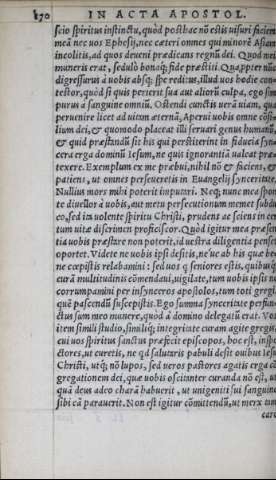 870 IN ACTA APOSTOL.
scio spiritus instinctu, quòd posthac nō estis uisuri faciem
meā nec uos Ephesij, nec cæteri omnes qui minorē Asiam
incolitis, ad quos deueni prædicans regnū dei. Quod mei
muneris erat, sedulò bonaq; fide præstiti. Quapper nūc
digressurus à uobis absq; spe reditus, illud uos hodie con
testor, quòd si quis perierit sua aut aliorū culpa, ego sim
purus à sanguine omniū. Ostendi cunctis uerā uiam, qua
peruenire licet ad uitam æternā, Aperui uobis omne cōsi-
lium dei, & quomodo placeat illi seruari genus humanū,
& quid præstandū sit his qui perstiterint in fiducia syn-
cera erga dominū Iesum, ne quis ignorantiā ualeat præ-
texere. Exemplum ex me præbui, nihil nō & faciens, &
patiens, ut omnes perseueretis in Euangelij synceritate.
Nullius mors mihi poterit imputari. Neq; nunc mea spon
te diuellor à uobis, aut metu persecutionum memet subdu
co, sed iā uolente spiritu Christi, prudens ac sciens in cer
tum uitæ discrimen proficiscor. Quòd igitur mea præsen
tia uobis præstare non poterit, id uestra diligentia penset
oportet. Videte ne uobis ipsi desitis, ne'ue ab his quæ be
ne cœpistis relabamini: sed uos q seniores estis, quibusq;
curā multitudinis cōmendaui, uigilate, tum uobis ipsis ne
corrumpamini per insynceros apostolos, tum toti gregi
quē pascendū suscepistis. Ego summa synceritate perfun
ctus sum meo munere, quòd à domino delegatū erat. Vos
item simili studio, similiq; integritate curam agite gregis,
cui uos spiritus sanctus præfecit episcopos, hoc est, inspe
ctores, ut curetis, ne qd salutaris pabuli desit ouibus Iesu
Christi, utq; nō lupos, sed ueros pastores agatis erga cō
gregationem dei, quæ uobis oscitanter curanda nō est, ut
quā deus adeo charā habuerit, ut unigeniti sui sanguine
sibi eā parauerit. Non est igitur cōmittendū, ut merx tam
cara